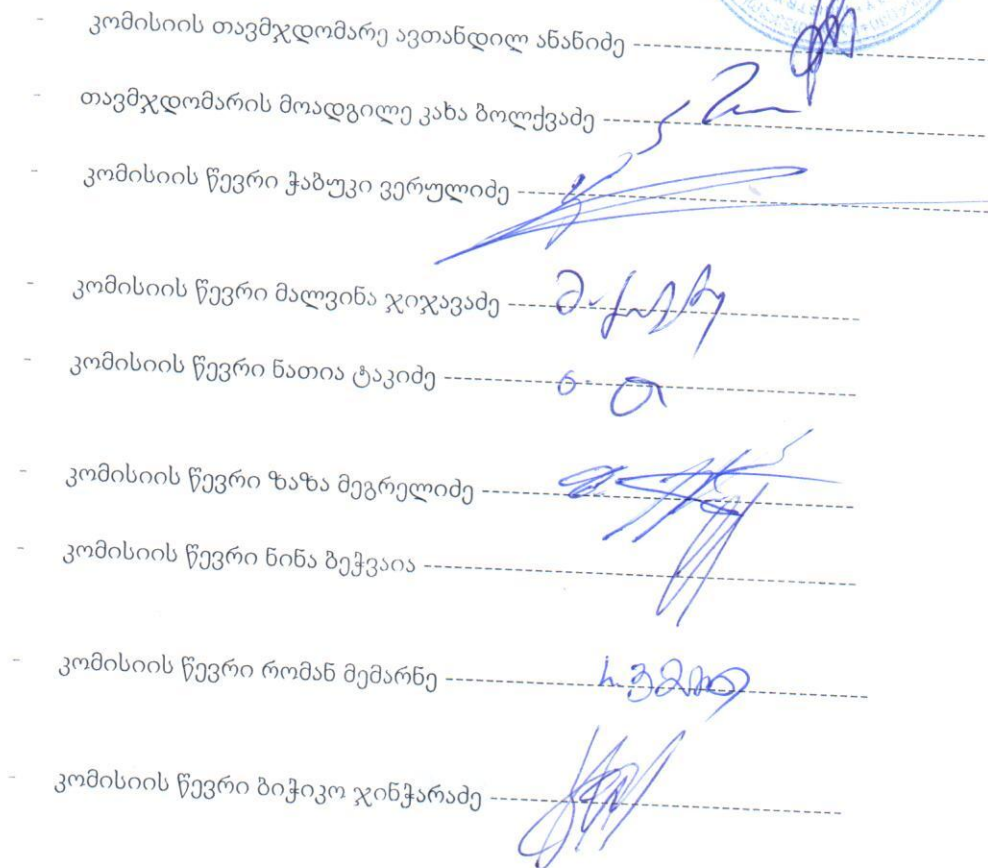 - კომისიის თავმჯდომარე ავთანდილ ანანიძე
- თავმჯდომარის მოადგილე კახა ბოლქვაძე
- კომისიის წევრი ჭაბუკი ვერულიძე
- კომისიის წევრი მალვინა ჯიჯავაძე
- კომისიის წევრი ნათია ტაკიძე
- კომისიის წევრი ზაზა მეგრელიძე
- კომისიის წევრი ნინა ბეჭვაია
- კომისიის წევრი რომან მემარნე
- კომისიის წევრი ბიჭიკო ჯინჭარაძე